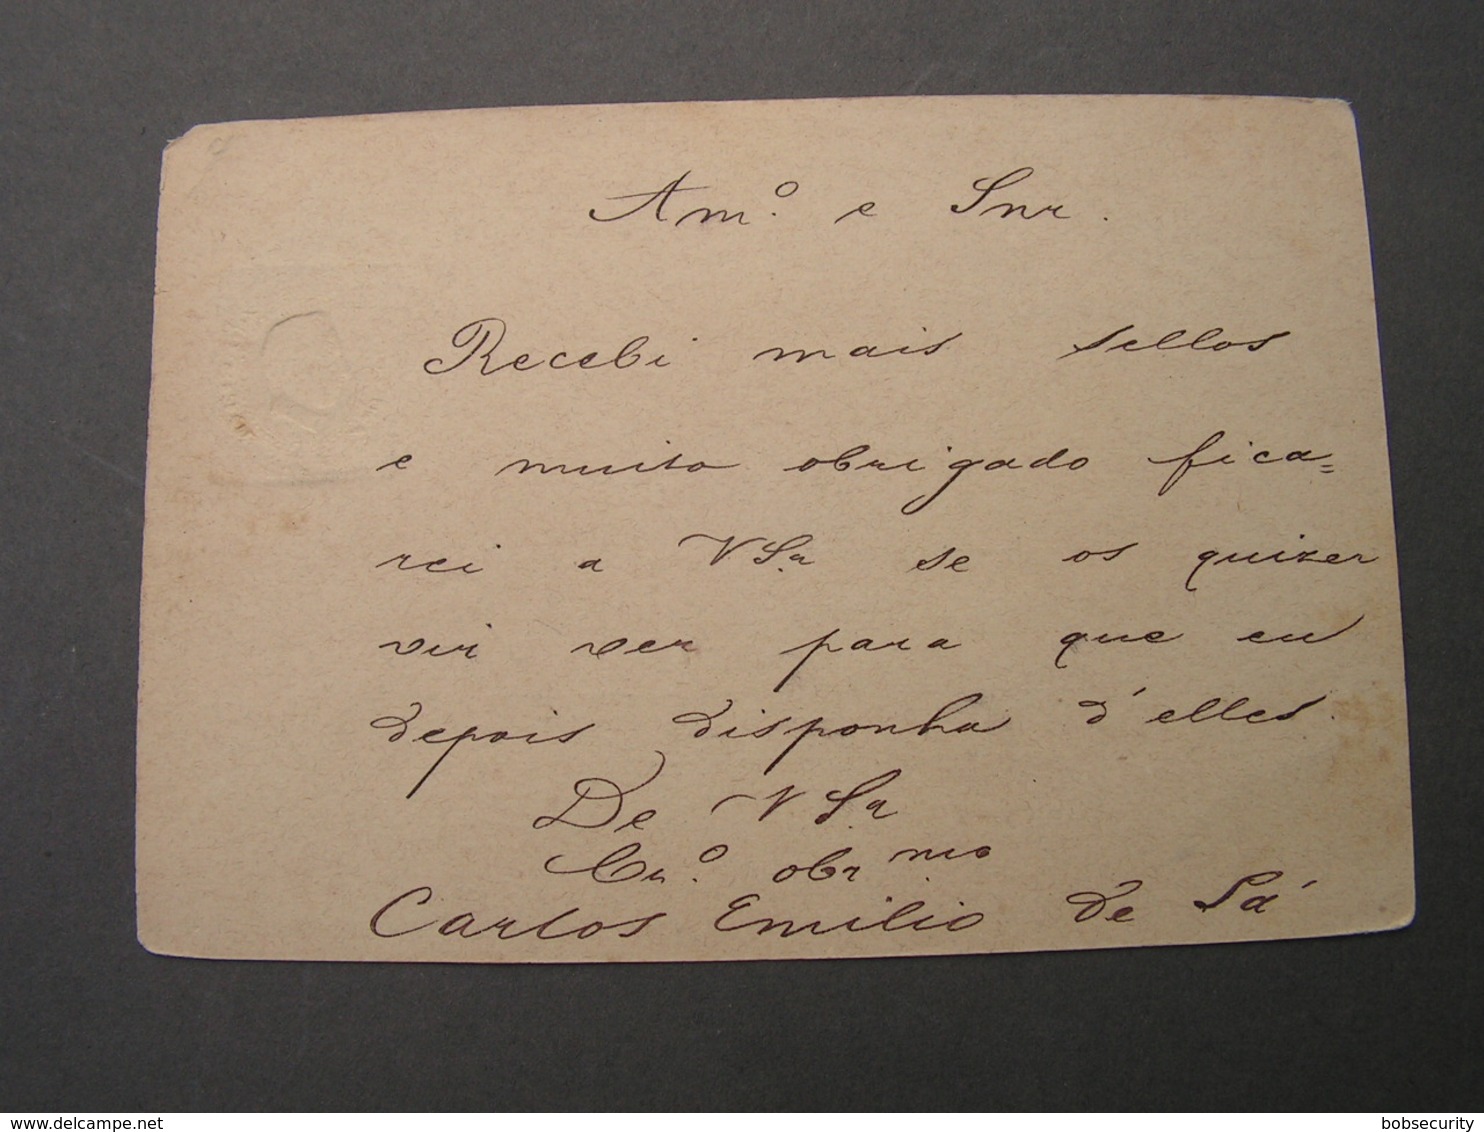 Am.º e Snr.
Recebi mais sellos
e muito obrigado fica=
rei a V Sª se os quizer
vir ver para que eu
depois disponha d'elles.
De V Sª
Cr.º obr mo
Carlos Emilio de Sá
bobsecurity